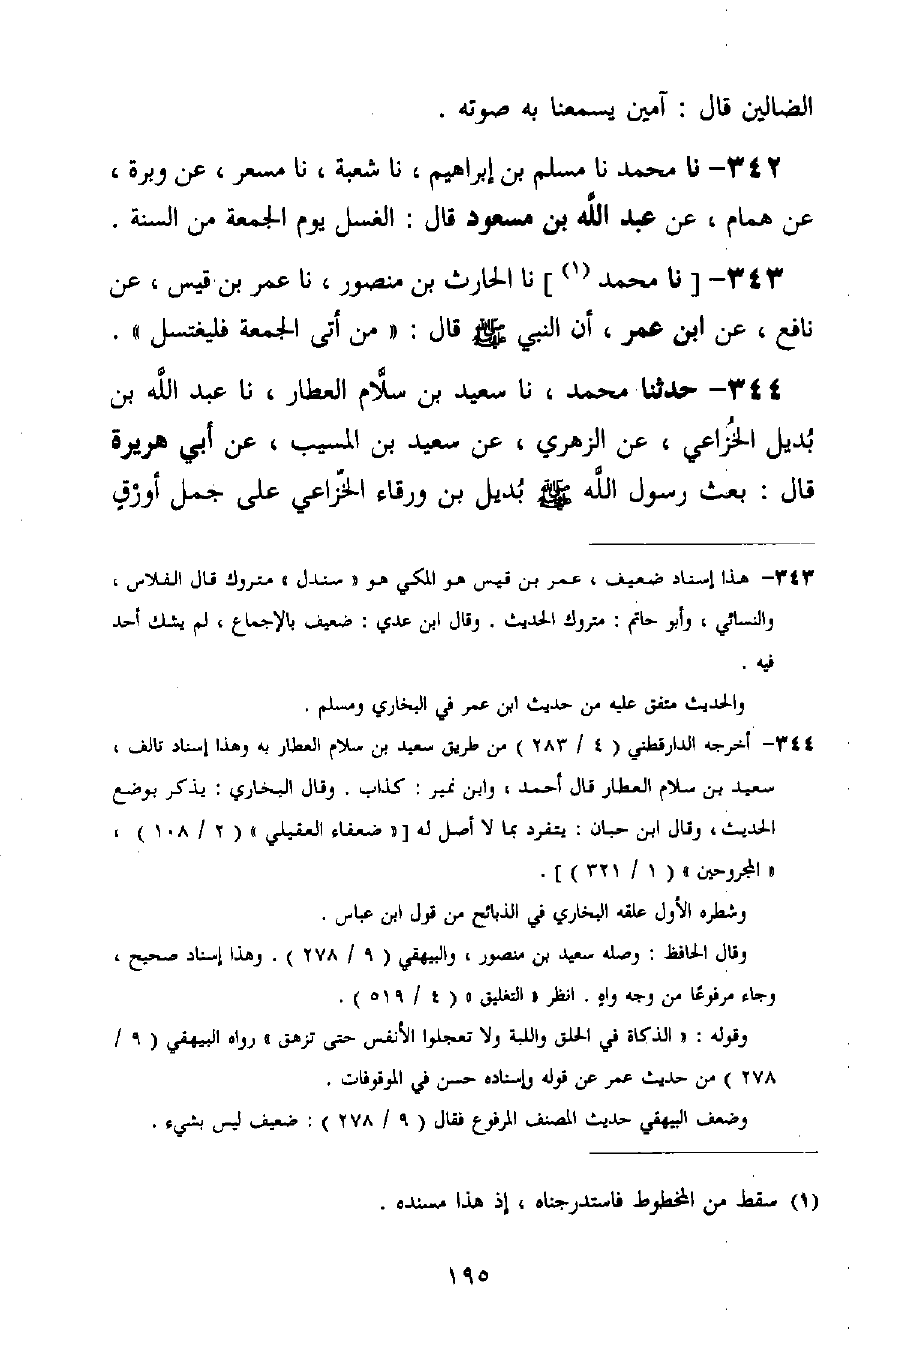 الضالين قال : آمين يسمعنا به صوته .
٣٤٢- نا محمد نا مسلم بن إبراهيم ، نا شعبة ، نا مسعر ، عن وبرة ،
عن همام ، عن عبد اللَّه بن مسعود قال : الغسل يوم الجمعة من السنة .
٣٤٣- [ نا محمد (١) ] نا الحارث بن منصور ، نا عمر بن قيس ، عن
نافع ، عن ابن عمر ، أن النبي ﷺ قال : « من أتى الجمعة فليغتسل » .
٣٤٤- حدثنا محمد ، نا سعيد بن سلَّام العطار ، نا عبد اللَّه بن
بُديل الخُزاعي ، عن الزهري ، عن سعيد بن المسيب ، عن أبي هريرة
قال : بعث رسول اللَّه ﷺ بُديل بن ورقاء الخزاعي على جمل أورْق
٣٤٣- هذا إسناد ضعيف ، عمر بن قيس هو المكي هو « سندل » متروك قال الفلاس ،
والنسائي ، وأبو حاتم : متروك الحديث . وقال ابن عدي : ضعيف بالإجماع ، لم يشك أحد
فيه .
والحديث متفق عليه من حديث ابن عمر في البخاري ومسلم .
٣٤٤- أخرجه الدارقطني ( ٤ / ٢٨٣ ) من طريق سعيد بن سلام العطار به وهذا إسناد تالف ،
سعيد بن سلام العطار قال أحمد ، وابن نمير : كذاب . وقال البخاري : يذكر بوضع
الحديث ، وقال ابن حبان : يتفرد بما لا أصل له [« ضعفاء العقيلي » ( ٢ / ١٠٨ ) ،
« المجروحين » ( ١ / ٣٢١ ) ] .
وشطره الأول علقه البخاري في الذبائح من قول ابن عباس .
وقال الحافظ : وصله سعيد بن منصور ، والبيهقي ( ٩ / ٢٧٨ ) . وهذا إسناد صحيح ،
وجاء مرفوعًا من وجه واهٍ . انظر « التغليق » ( ٤ / ٥١٩ ) .
وقوله : « الذكاة في الحلق واللبة ولا تعجلوا الأنفس حتى تزهق » رواه البيهقي ( ٩ /
٢٧٨ ) من حديث عمر عن قوله وإسناده حسن في الموقوفات .
وضعف البيهقي حديث المصنف المرفوع فقال ( ٩ / ٢٧٨ ) : ضعيف ليس بشيء .
(١) سقط من المخطوط فاستدرجناه ، إذ هذا مسنده .
١٩٥